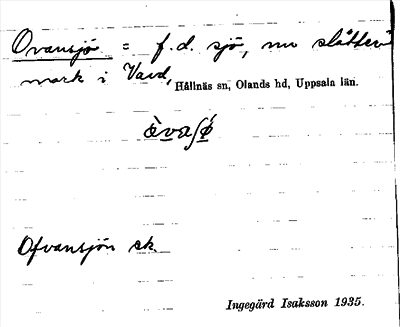 Ovansjö = f.d. sjö, nu slåtter-
mark i Vavd, Hållnäs sn, Olands hd, Uppsala län.
Ofvansjön ek.
Ingegärd Isaksson 1935.